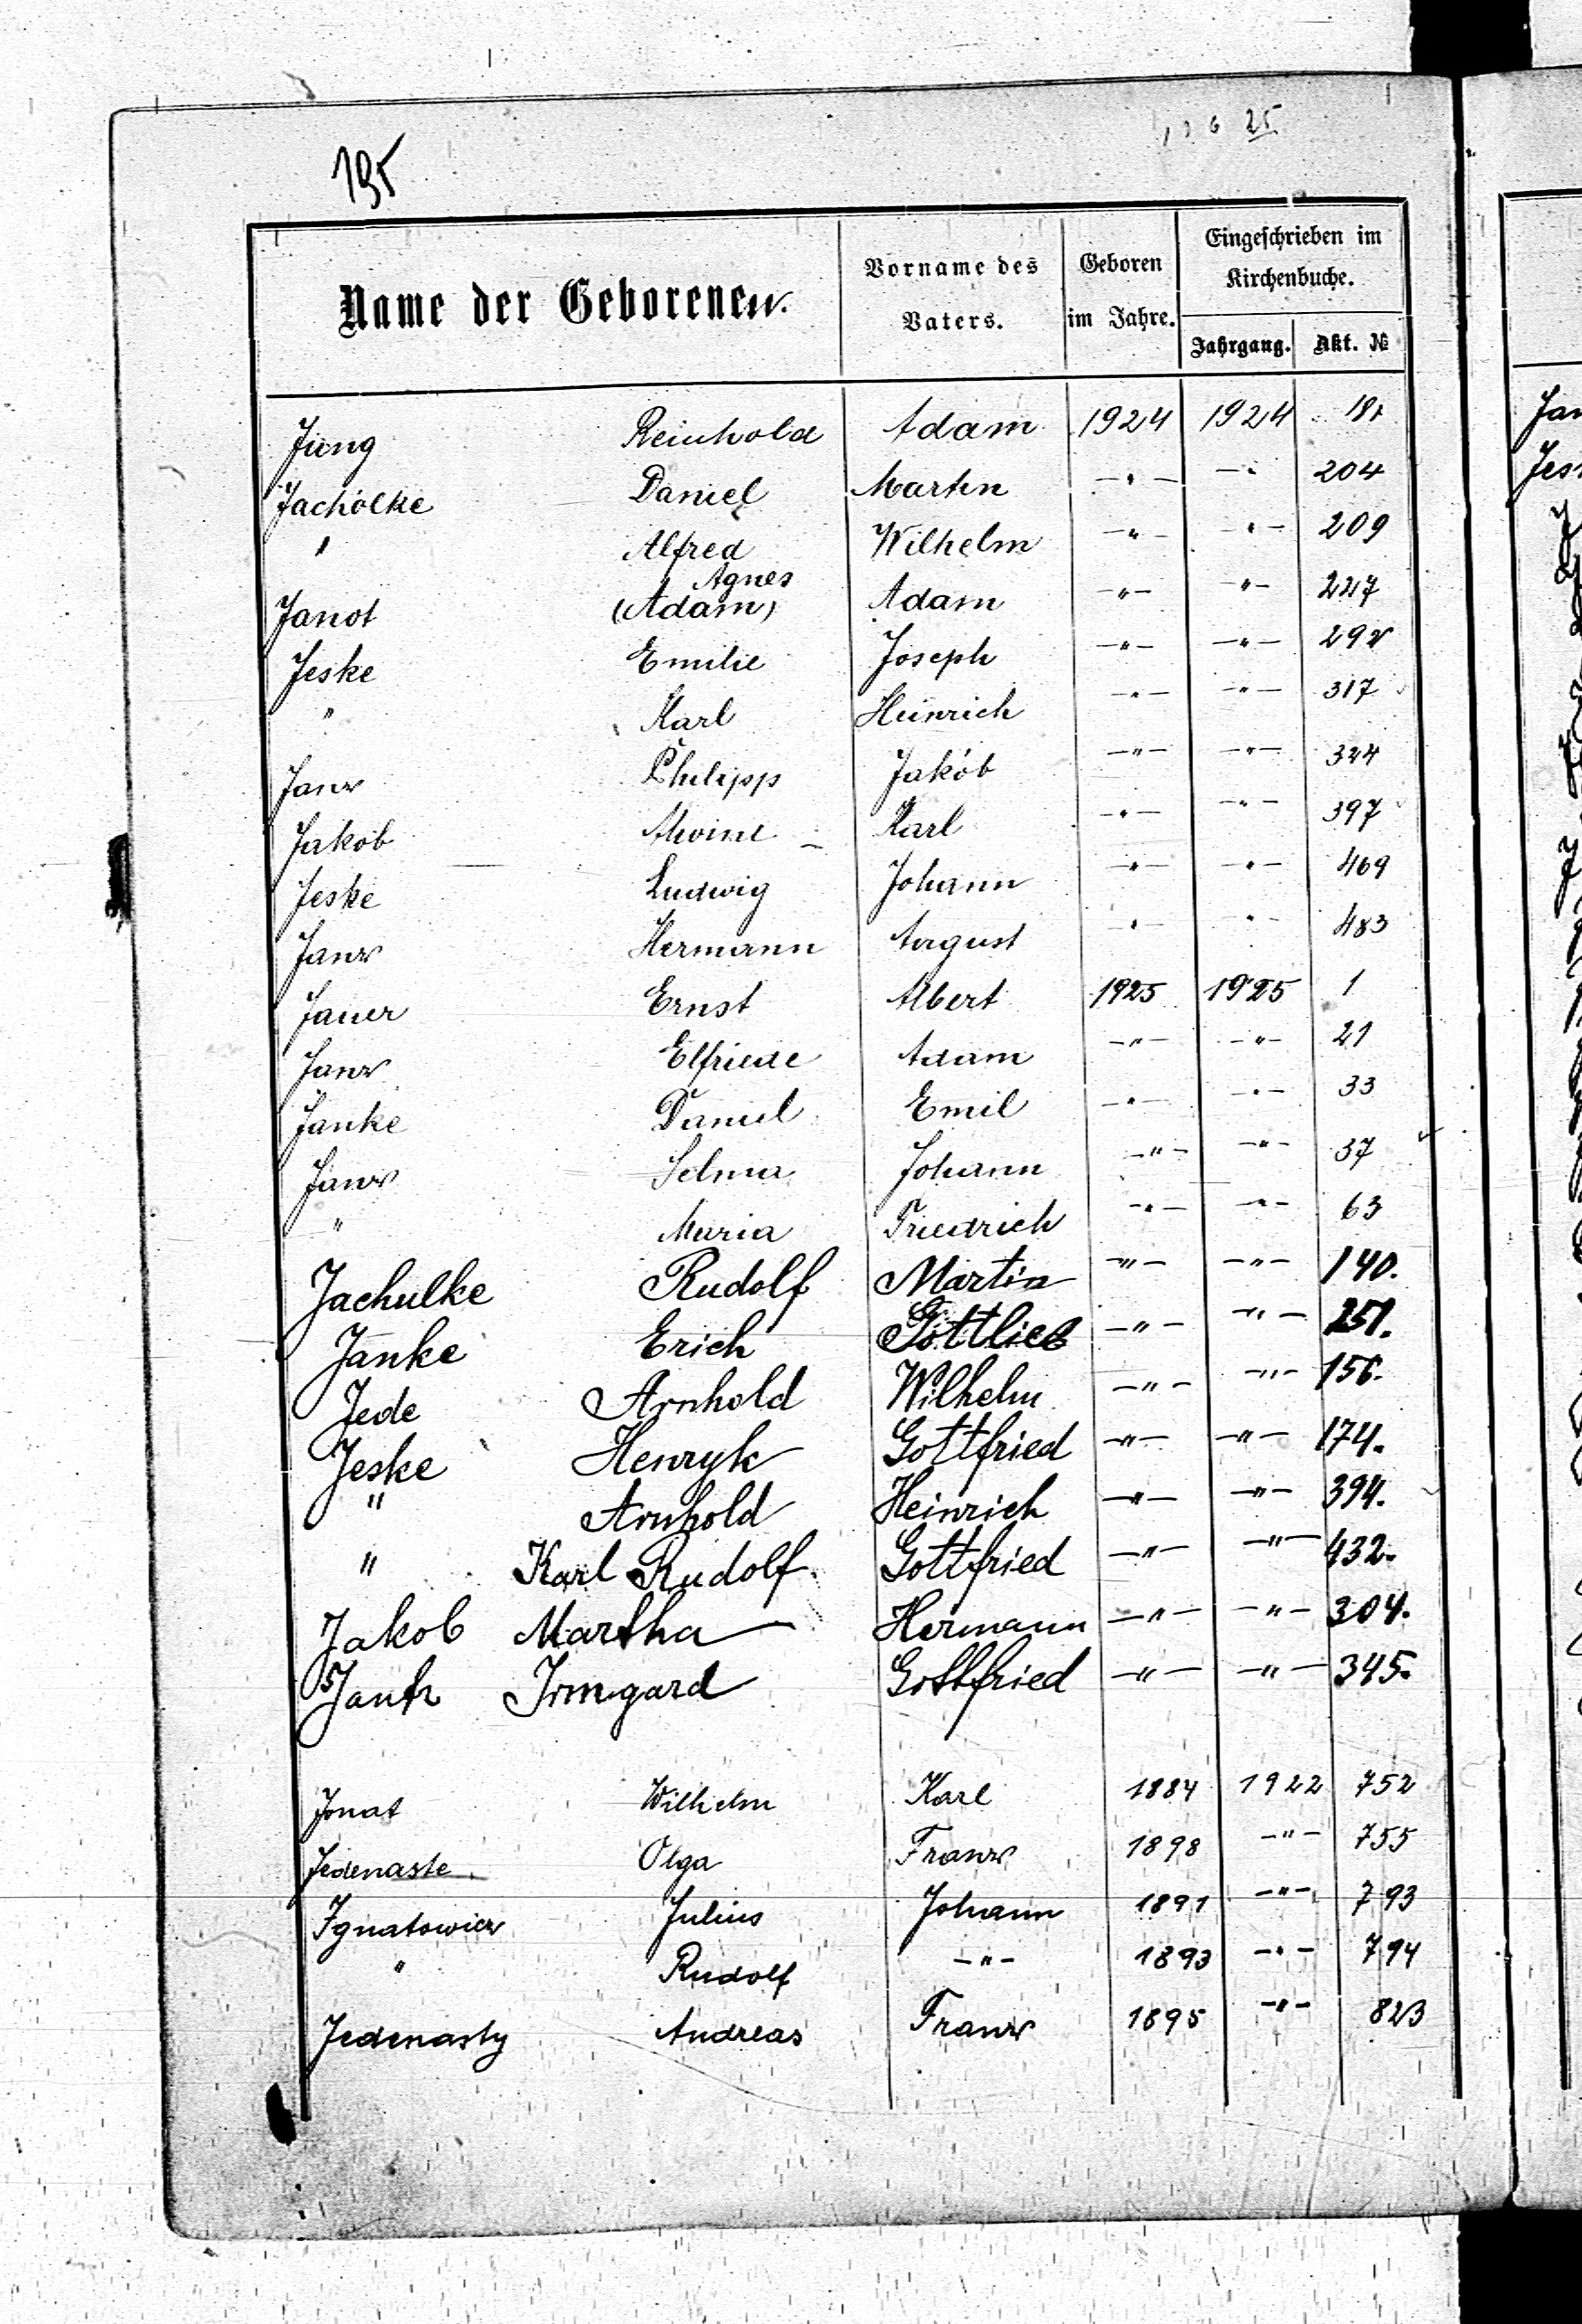 195
25
Name der Geborenen.
Vorname des Vaters.
Geboren im Jahre.
Eingeschrieben im Kirchenbuche.
Jahrgang. Akt. №
Jung Reinhold Adam 1924 1924
Jacholke Daniel Martin -"- -"- 204
" Alfred Wilhelm -"- -"- 209
Agnes
Janot (Adam) Adam -"- "- 227
Jeske Emilie Joseph -"- -"- 292
" Karl Heinrich -"- -"- 317
Janz Philipp Jakob -"- -"- 324
Jakob Alwine Karl -"- -"- 397
Jeske Ludwig Johann -"- -"- 469
Janz Hermann August -"- -"- 483
Jauer Ernst Albert 1925 1925 1
Janz Elfriede Adam -"- -"- 21
Janke Daniel Emil -"- -"- 33
Janz Selma Johann -"- -"- 37
" Maria Friedrich -"- -"- 63
Jachulke Rudolf Martin -"- -"- 140.
Janke Erich Gottlieb -"- -"- 251.
Jede Arnhold Wilhelm -"- -"- 156.
Jeske Henryk Gottfried -"- -"- 174.
" Arnhold Heinrich -"- -"- 394.
" Karl Rudolf Gottfried -"- -"- 432.
Jakob Martha Hermann -"- -"- 304.
Jantz Irmgard Gottfried -"- -"- 345.
Jonat Wilhelm Karl 1884 1922 752
Jedenaste Olga Franz 1898 -"- 755
Ignatowicz Julius Johann 1891 -"- 793
" Rudolf -"- 1893 -"- 794
Jedenasty Andreas Franz 1895 -"- 823